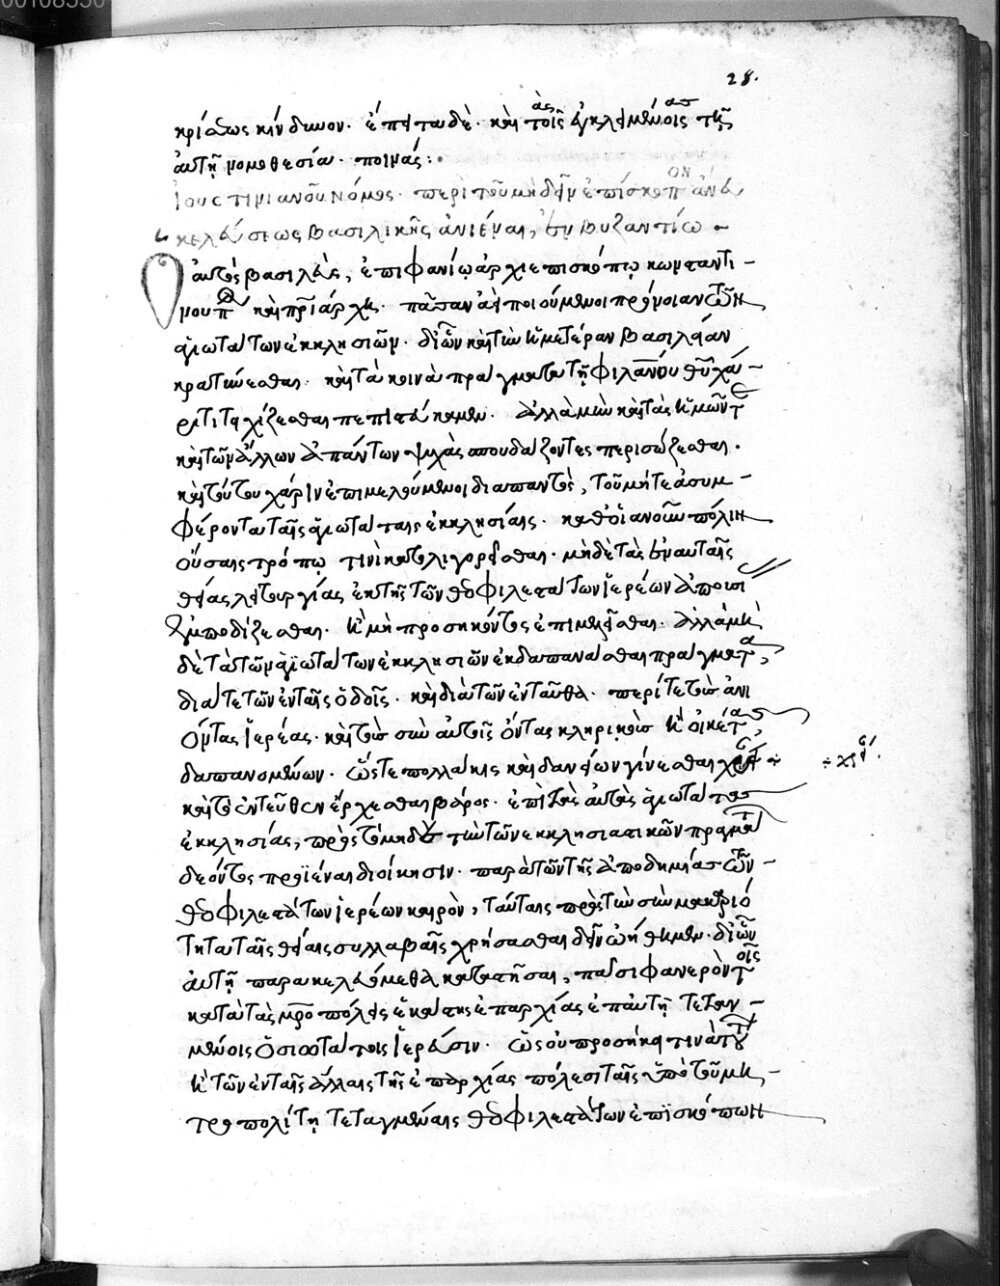 00108350
28.
κρίσεως κίνδυνον. ἕπεται δὲ. καὶ τοῖς ἐγκλημένοις τῆς
αὐτῆ νομοθεσία. ποινάς:
Ἰουστινιανοῦ Νόμος. περὶ τοῦ μὴ δεῖν ἐπίσκοπον ἄνευ
κελεύσεως βασιλικῆς ἀνιέναι, ἐν Βυζαντίω
αὐτὸς βασιλεὺς, ἐπιφανίῳ ἀρχιεπισκόπῳ κωνσταντι
νουπ καὶ πριάρχη. πᾶσαν ἀεὶ ποιούμενοι πρόνοιαν τῶν
ἁγιωτάτων ἐκκλησιῶν. δι' ὧν καὶ τὴν ἡμετέραν βασιλείαν
κρατύνεσθαι. καὶ τὰ κοινὰ πράγματα τῇ φιλανου θῦ χά
ριτι τειχίζεσθαι πεπιστεύκαμεν. ἀλλὰ μὴν καὶ τὰς ἡμῶν τε
καὶ τῶν ἄλλων ἁπάντων ψυχὰς σπουδάζοντες περισώζεσθαι.
καὶ τούτου χάριν ἐπιμελούμενοι διαπαντὸς, τοῦ μήτε ἀσυμ
φέροντα ταῖς ἁγιωτάταις ἐκκλησίαις. καθ' οἱανοῦν πόλιν
οὔσαις τρόπῳ τινὶ κατολιγορεῖσθαι. μὴ δὲ τὰς ἐν αὐταῖς
θείας λειτουργίας ἐκ τῆς τῶν θεοφιλεστάτων ἱερέων ἀποισί
ἐμποδίζεσθαι. ἢ μὴ προσηκόντως ἐπιμελεῖσθαι. ἀλλὰ μὴ
δὲ τὰ τῶν ἁγιωτάτων ἐκκλησιῶν ἐκδαπανᾶσθαι πράγματα,
διά τε τῶν ἐν ταῖς ὁδοῖς. καὶ διὰ τῶν ἐνταῦθα. περί τε τοὺς ἀνι
όντας ἱερέας. καὶ τοὺς σὺν αὐτοῖς ὄντας κληρικοὺς ἢ οἰκέτας,
δαπανομένων. ὥστε πολλάκις καὶ δανείων γίνεσθαι
καὶ τὸ ἐντεῦθεν ἔρχεσθαι βάρος. ἐπὶ τὰς αὐτὰς ἁγιωτάτας
ἐκκλησίας, πρὸς τὸ μηδὲ τὴν τῶν ἐκκλησιαστικῶν πραγμάτ
δεόντως προϊέναι διοίκησιν. παρὰ τῶν τῆς ἀποδημίας τῶν
θεοφιλεστάτων ἱερέων καιρὸν, ταύταις πρὸς τὴν σὴν μακαριό
τητα ταῖς θείαις συλλαβαῖς χρήσασθαι δεῖν ὠήθημεν. δι' ὧν
αὐτῇ παρακελευόμεθα καταστῆσαι, πᾶσι φανερὸν τοῖς
κατὰ τὰς μρόπόλεις ἑκάστης ἐπαρχίας ἐπ' αὐτῇ τεταγ
μένοις ὁσιοτάτοις ἱερεῦσιν. ὡς οὐ προσήκει τινὰ τού
ἢ τῶν ἐν ταῖς ἄλλαις τῆς ἐπαρχίας πόλεσι ταῖς ὑπὸ τοῦ μη
τροπολίτῃ τεταγμέναις θεοφιλεστάτων ἐπισκόπων